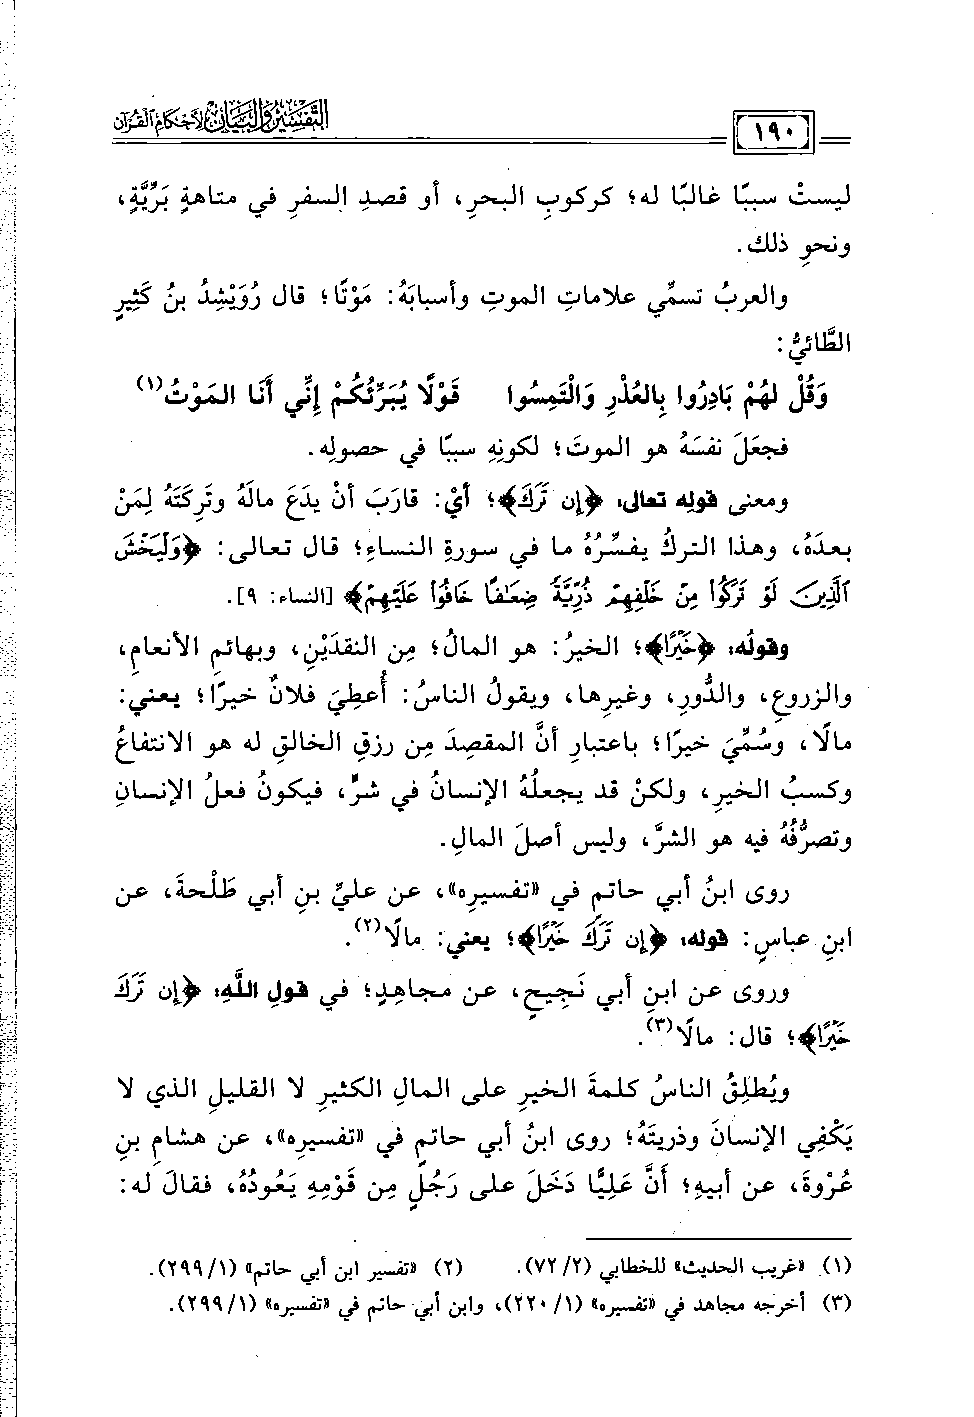 التَّفْسِيْرُ وَالبَيَانُ لِأَحْكَامِ القُرْآنِ
١٩٠
ليستْ سببًا غالبًا له؛ كركوبِ البحرِ، أو قصدِ السفرِ في متاهةٍ بَرِّيَّةٍ،
ونحوِ ذلك.
والعربُ تسمِّي علاماتِ الموتِ وأسبابَهُ: مَوْتًا؛ قال رُوَيْشِدُ بنُ كَثِيرٍ
الطَّائيُّ:
وَقُلْ لهُمْ بَادِرُوا بِالعُذْرِ وَالْتَمِسُوا قَوْلًا يُبَرِّئُكُمْ إِنِّي أَنَا المَوْتُ(١)
فجعَلَ نفسَهُ هو الموتَ؛ لكونِهِ سببًا في حصولِه.
ومعنى قولِه تعالى: ﴿إِن تَرَكَ﴾؛ أيْ: قارَبَ أنْ يدَعَ مالَهُ وتَرِكَتَهُ لِمَنْ
بعدَهُ، وهذا التركُ يفسِّرُهُ ما في سورةِ النساءِ؛ قال تعالى: ﴿وَلْيَخْشَ
ٱلَّذِينَ لَوْ تَرَكُوا۟ مِنْ خَلْفِهِمْ ذُرِّيَّةً ضِعَٰفًا خَافُوا۟ عَلَيْهِمْ﴾ [النساء: ٩].
وقولُه: ﴿خَيْرًا﴾؛ الخيرُ: هو المالُ؛ مِن النقدَيْنِ، وبهائمِ الأنعامِ،
والزروعِ، والدُّورِ، وغيرِها، ويقولُ الناسُ: أُعطِيَ فلانٌ خيرًا؛ يعني:
مالًا، وسُمِّيَ خيرًا؛ باعتبارِ أنَّ المقصِدَ مِن رزقِ الخالقِ له هو الانتفاعُ
وكسبُ الخيرِ، ولكنْ قد يجعلُهُ الإنسانُ في شرٍّ، فيكونُ فعلُ الإنسانِ
وتصرُّفُهُ فيه هو الشرَّ، وليس أصلَ المالِ.
روى ابنُ أبي حاتمٍ في «تفسيرِه»، عن عليِّ بنِ أبي طَلْحةَ، عن
ابنِ عباسٍ: قوله: ﴿إِن تَرَكَ خَيْرًا﴾؛ يعني: مالًا(٢).
وروى عن ابنِ أبي نَجِيحٍ، عن مجاهِدٍ؛ في قولِ اللَّهِ: ﴿إِن تَرَكَ
خَيْرًا﴾؛ قال: مالًا(٣).
ويُطلِقُ الناسُ كلمةَ الخيرِ على المالِ الكثيرِ لا القليلِ الذي لا
يَكْفِي الإنسانَ وذريتَهُ؛ روى ابنُ أبي حاتمٍ في «تفسيرِه»، عن هشامِ بنِ
عُرْوةَ، عن أبيهِ؛ أنَّ عَلِيًّا دَخَلَ على رَجُلٍ مِن قَوْمِهِ يَعُودُهُ، فقالَ له:
(١) «غريب الحديث» للخطابي (٢/ ٧٢). (٢) «تفسير ابن أبي حاتم» (١/ ٢٩٩).
(٣) أخرجه مجاهد في «تفسيره» (١/ ٢٢٠)، وابن أبي حاتم في «تفسيره» (١/ ٢٩٩).